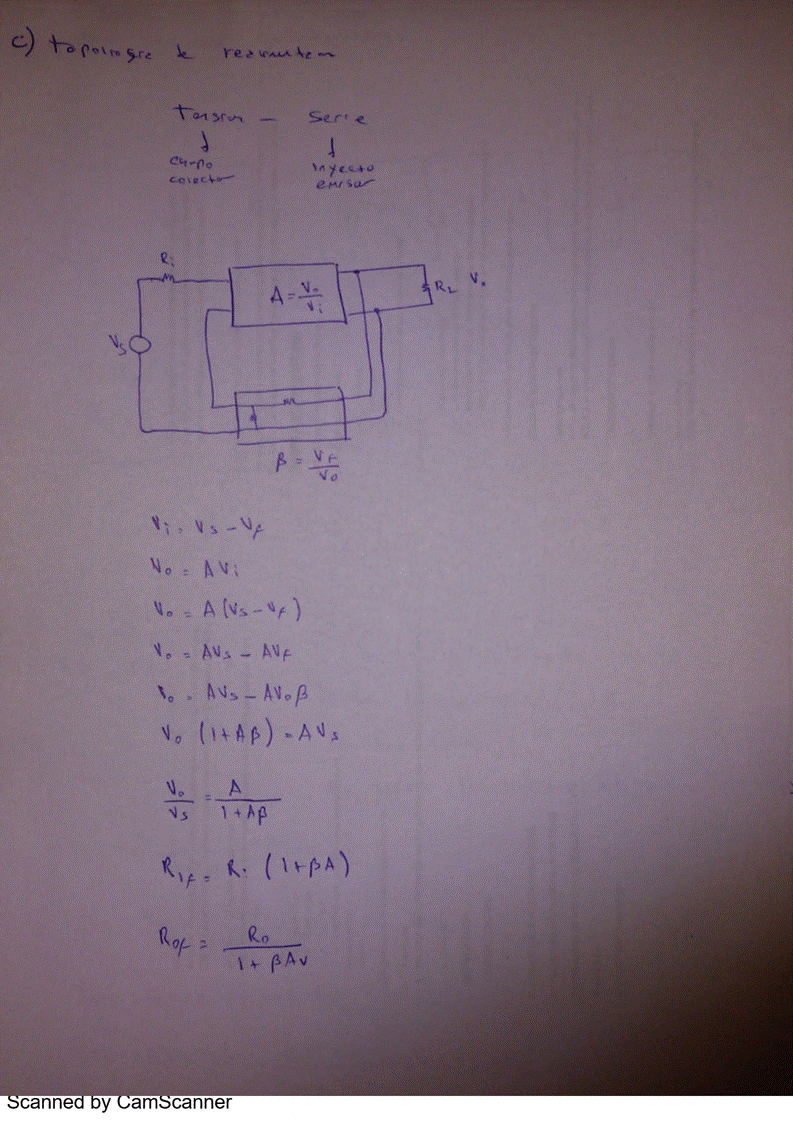 c) topologia de realimentacion
Tension – Serie
campo inyecto
colector emisor
Ri
A = Vo/Vi
RL Vo
Vs
β = Vf/Vo
Vi = Vs – Vf
Vo = AVi
Vo = A(Vs – Vf)
Vo = AVs – AVf
Vo = AVs – AVoβ
Vo (1+Aβ) = AVs
Vo/Vs = A/(1+Aβ)
Rif = Ri (1+βA)
Rof = Ro/(1+βAv)
Scanned by CamScanner